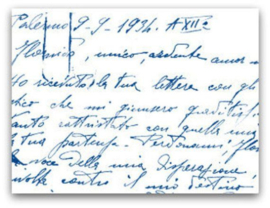 Palermo 9-9-1934. A XII°
unico, ardente amor
Ho ricevuto la tua lettera con gli
che mi giunsero graditissi
rattristato con quella
tua partenza - Perdonami,
voce della mia disperazione,
contro il mio destino